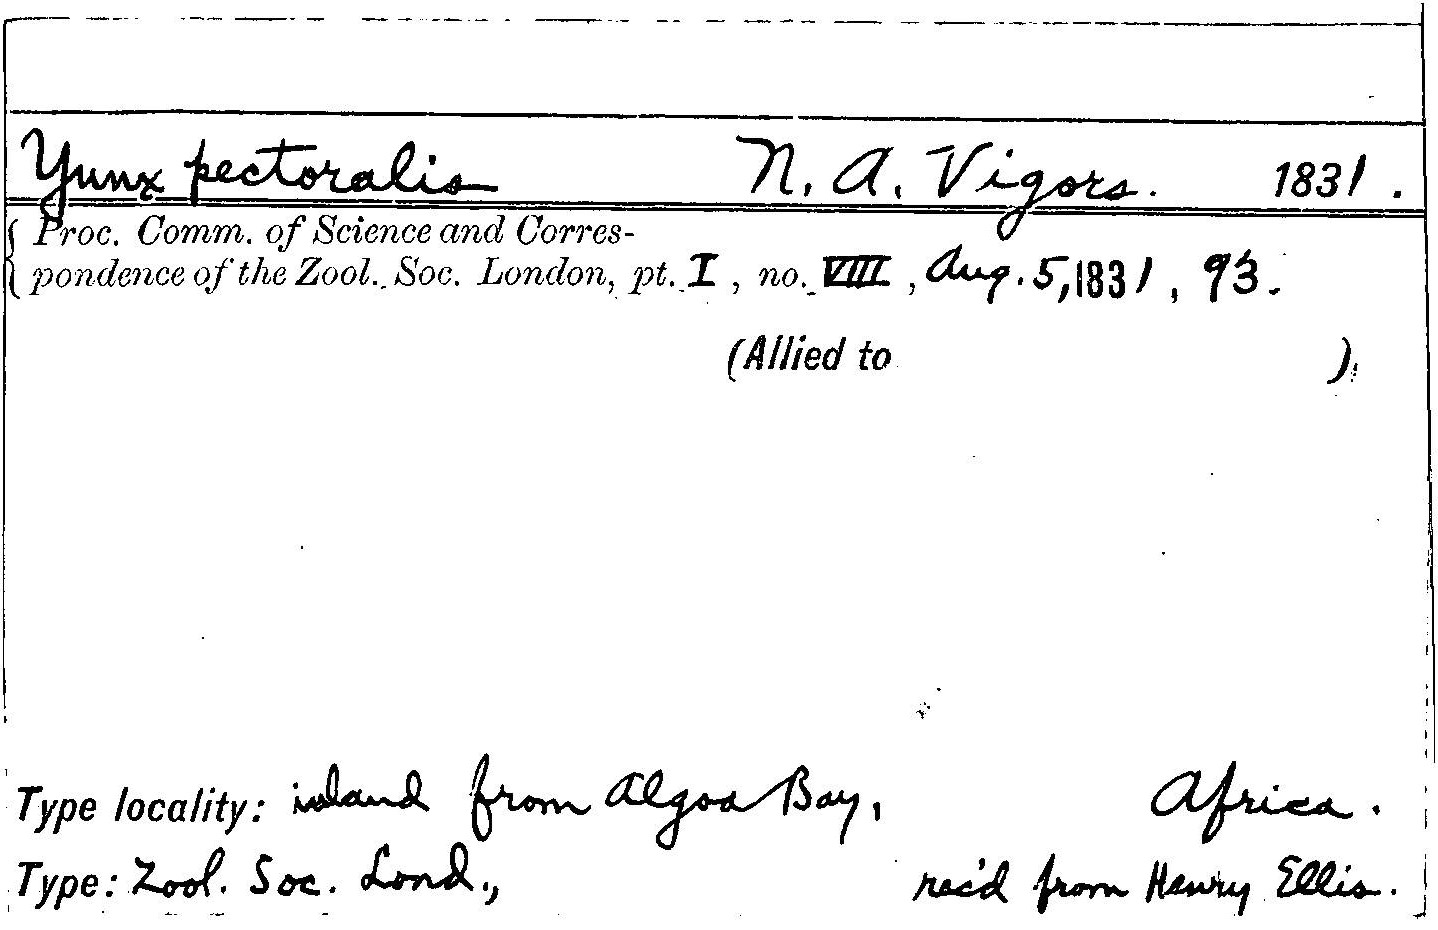 Yunx pectoralis N. A. Vigors. 1831.
Proc. Comm. of Science and Corres-
pondence of the Zool. Soc. London, pt. I, no. VIII, Aug. 5, 1831, 93.
(Allied to )
Type locality: inland from Algoa Bay, Africa.
Type: Zool. Soc. Lond., rec'd from Henry Ellis.